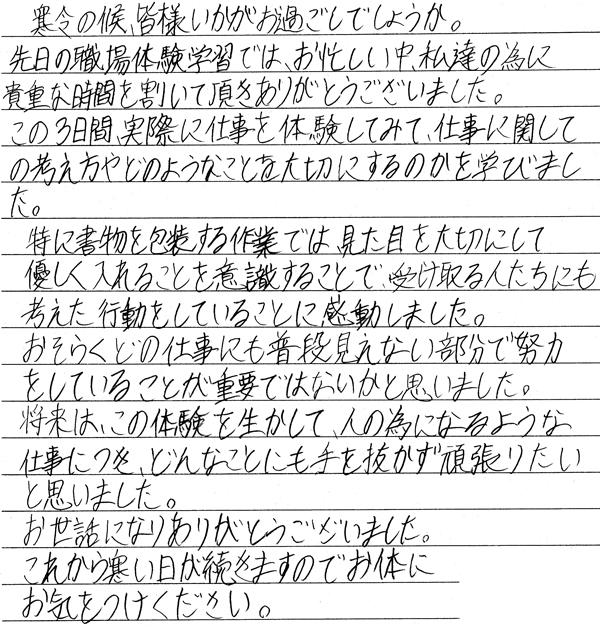 寒冷の候、皆様いかがお過ごしでしょうか。
先日の職場体験学習では、お忙しい中、私達の為に
貴重な時間を割いて頂きありがとうございました。
この3日間、実際に仕事を体験してみて、仕事に関して
の考え方やどのようなことを大切にするのかを学びまし
た。
特に書物を包装する作業では、見た目を大切にして
優しく入れることを意識することで、受け取る人たちにも
考えた行動をしていることに感動しました。
おそらくどの仕事にも普段見えない部分で努力
をしていることが重要ではないかと思いました。
将来は、この体験を生かして、人の為になるような
仕事につき、どんなことにも手を抜かず頑張りたい
と思いました。
お世話になりありがとうございました。
これから寒い日が続きますのでお体に
お気をつけください。